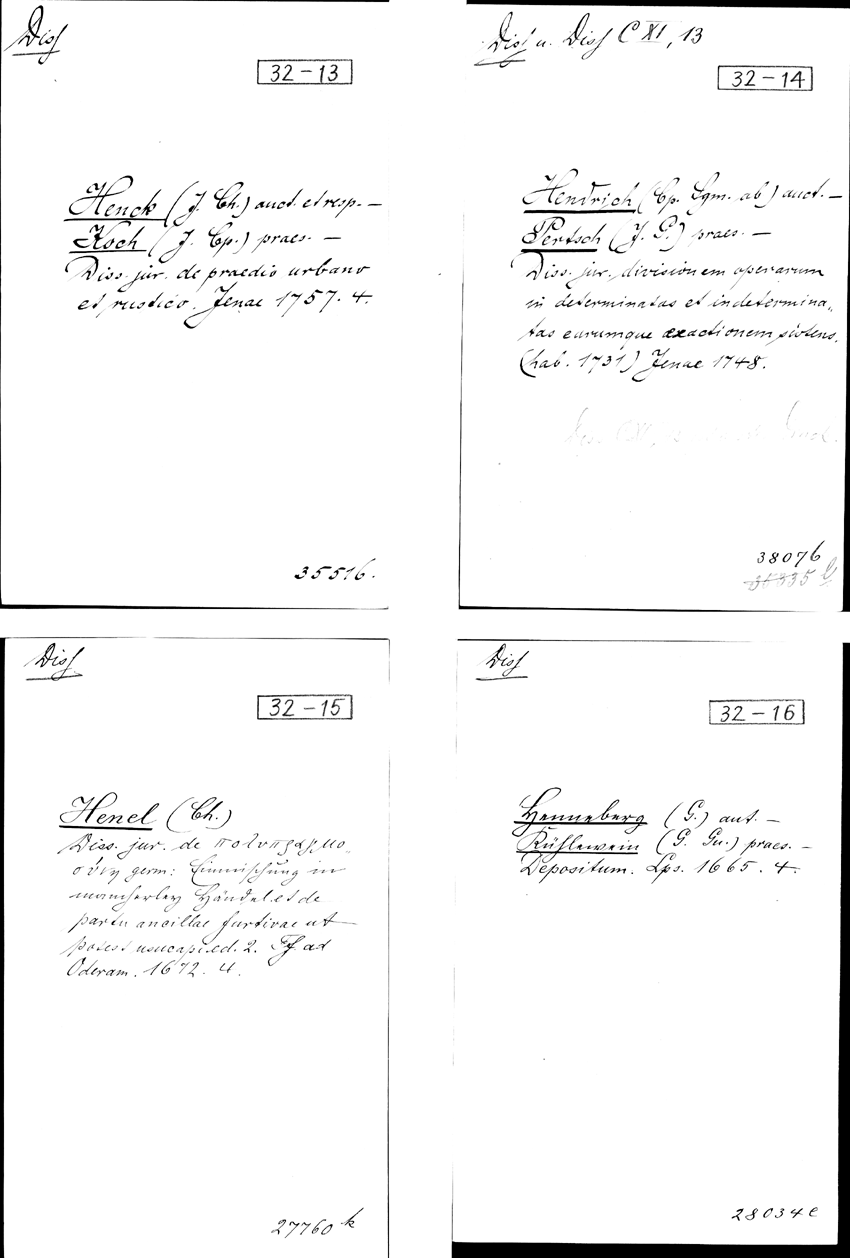 Diss
32-13
Henck (J. Ch.) auct. et resp. —
Koch (J. Cp.) praes. —
Diss. jur. de praedio urbano
et rustico. Jenae 1757. 4.
35516.
Diss u. Diss C XI, 13
32-14
Hendrich (Cp. Sgm. ab) auct. —
Pertsch (J. G.) praes. —
Diss. jur. divisionem operarum
in determinatas et indetermina„
tas earumque exactionem sistens.
(hab. 1731) Jenae 1748.
38076
Diss
32-15
Henel (Ch.)
Diss. jur. de πολυπραγμο-
σύνῃ germ: Einmischung in
mancherley Händel et de
partu ancillae furtivae ut
potest usucapi. ed. 2. Ff ad
Oderam. 1672. 4.
27760 k
Diss
32-16
Henneberg (G.) aut. —
Kühlewein (G. Gu.) praes. —
Depositum. Lps. 1665. 4.
28034 e